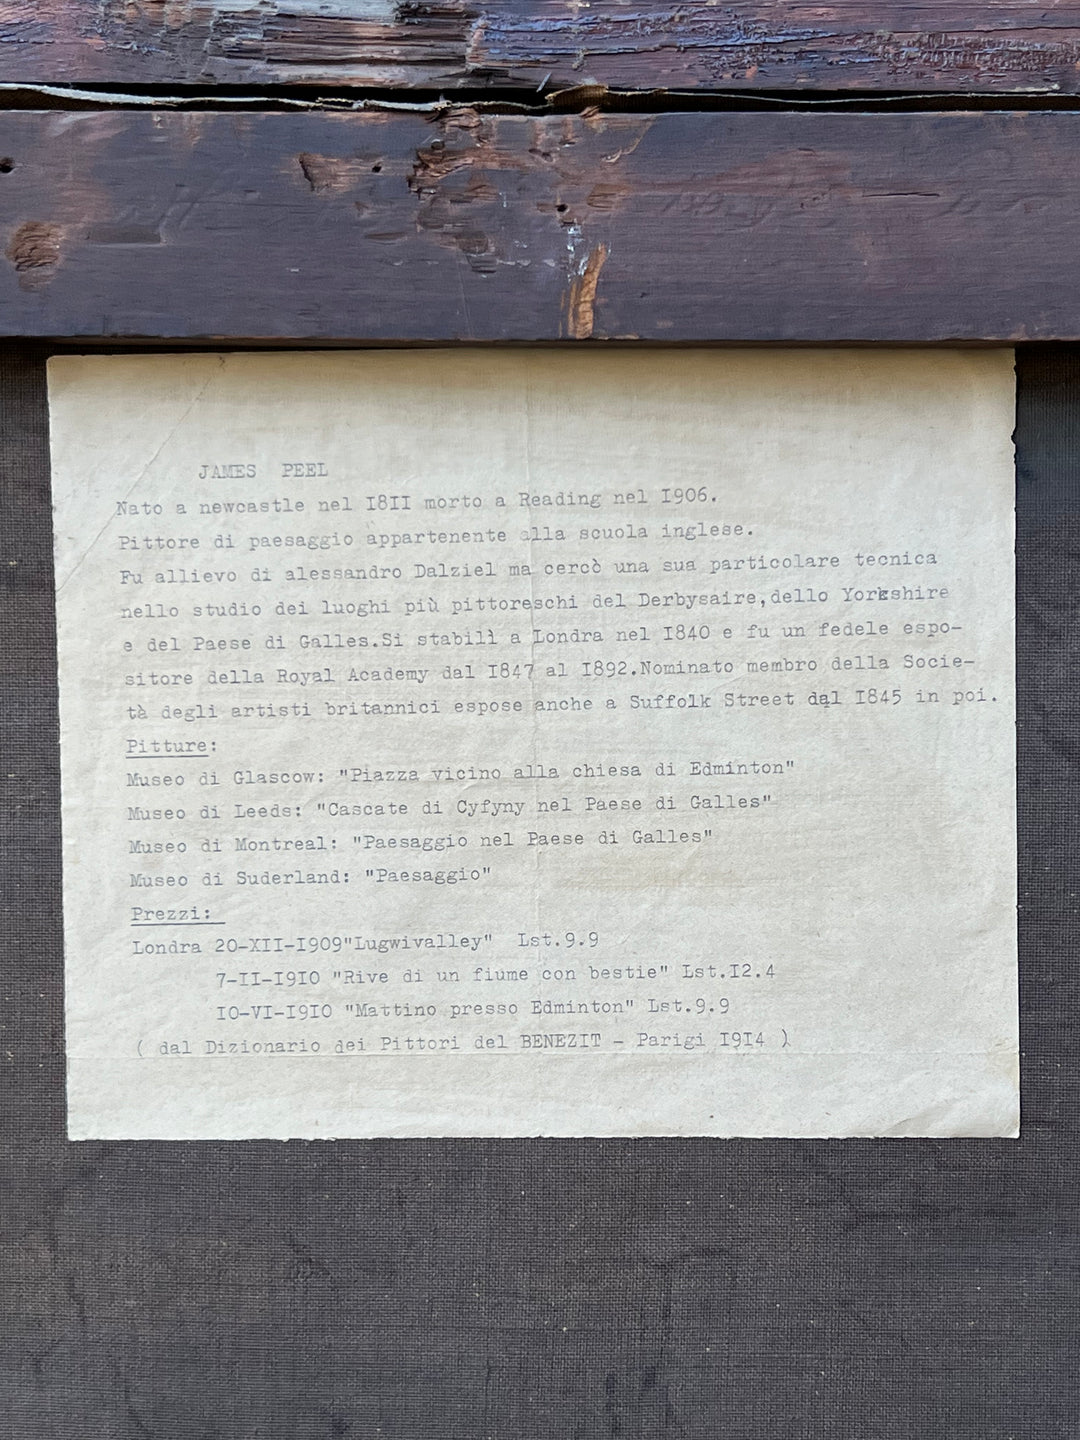 JAMES PEEL
Nato a newcastle nel I8II morto a Reading nel I906.
Pittore di paesaggio appartenente alla scuola inglese.
Fu allievo di alessandro Dalziel ma cercò una sua particolare tecnica
nello studio dei luoghi più pittoreschi del Derbysaire,dello Yorkshire
e del Paese di Galles.Si stabilì a Londra nel I840 e fu un fedele espo-
sitore della Royal Academy dal I847 al I892.Nominato membro della Socie-
tà degli artisti britannici espose anche a Suffolk Street dal I845 in poi.
Pitture:
Museo di Glascow: "Piazza vicino alla chiesa di Edminton"
Museo di Leeds: "Cascate di Cyfyny nel Paese di Galles"
Museo di Montreal: "Paesaggio nel Paese di Galles"
Museo di Suderland: "Paesaggio"
Prezzi:
Londra 20-XII-I909"Lugwivalley" Lst.9.9
7-II-I9IO "Rive di un fiume con bestie" Lst.I2.4
IO-VI-I9IO "Mattino presso Edminton" Lst.9.9
( dal Dizionario dei Pittori del BENEZIT - Parigi I9I4 )